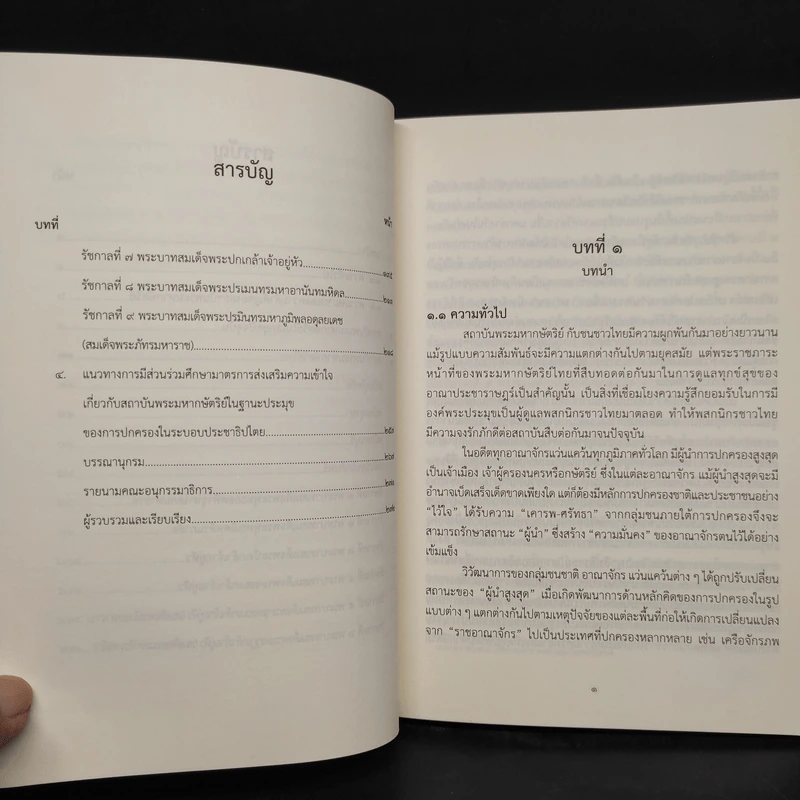 สารบัญ
บทที่ หน้า
รัชกาลที่ ๗ พระบาทสมเด็จพระปกเกล้าเจ้าอยู่หัว
รัชกาลที่ ๘ พระบาทสมเด็จพระปรเมนทรมหาอานันทมหิดล
รัชกาลที่ ๙ พระบาทสมเด็จพระปรมินทรมหาภูมิพลอดุลยเดช
(สมเด็จพระภัทรมหาราช)
๔. แนวทางการมีส่วนร่วมศึกษามาตรการส่งเสริมความเข้าใจ
เกี่ยวกับสถาบันพระมหากษัตริย์ในฐานะประมุข
ของการปกครองในระบอบประชาธิปไตย
บรรณานุกรม
รายนามคณะอนุกรรมาธิการ
ผู้รวบรวมและเรียบเรียง
บทที่ ๑
บทนำ
๑.๑ ความทั่วไป
สถาบันพระมหากษัตริย์ กับชนชาวไทยมีความผูกพันกันมาอย่างยาวนาน
แม้รูปแบบความสัมพันธ์จะมีความแตกต่างกันไปตามยุคสมัย แต่พระราชภาระ
หน้าที่ของพระมหากษัตริย์ไทยที่สืบทอดต่อกันมาในการดูแลทุกข์สุขของ
อาณาประชาราษฎร์เป็นสำคัญนั้น เป็นสิ่งที่เชื่อมโยงความรู้สึกยอมรับในการมี
องค์พระประมุขเป็นผู้ดูแลพสกนิกรชาวไทยมาตลอด ทำให้พสกนิกรชาวไทย
มีความจงรักภักดีต่อสถาบันสืบต่อกันมาจนปัจจุบัน
ในอดีตทุกอาณาจักรแว่นแคว้นทุกภูมิภาคทั่วโลก มีผู้นำการปกครองสูงสุด
เป็นเจ้าเมือง เจ้าผู้ครองนครหรือกษัตริย์ ซึ่งในแต่ละอาณาจักร แม้ผู้นำสูงสุดจะมี
อำนาจเบ็ดเสร็จเด็ดขาดเพียงใด แต่ก็ต้องมีหลักการปกครองชาติและประชาชนอย่าง
“ไว้ใจ” ได้รับความ “เคารพ-ศรัทธา” จากกลุ่มชนภายใต้การปกครองจึงจะ
สามารถรักษาสถานะ “ผู้นำ” ซึ่งสร้าง “ความมั่นคง” ของอาณาจักรตนไว้ได้อย่าง
เข้มแข็ง
วิวัฒนาการของกลุ่มชนชาติ อาณาจักร แว่นแคว้นต่าง ๆ ได้ถูกปรับเปลี่ยน
สถานะของ “ผู้นำสูงสุด” เมื่อเกิดพัฒนาการด้านหลักคิดของการปกครองในรูป
แบบต่าง ๆ แตกต่างกันไปตามเหตุปัจจัยของแต่ละพื้นที่ก่อให้เกิดการเปลี่ยนแปลง
จาก “ราชอาณาจักร” ไปเป็นประเทศที่ปกครองหลากหลาย เช่น เครือจักรภพ
๑